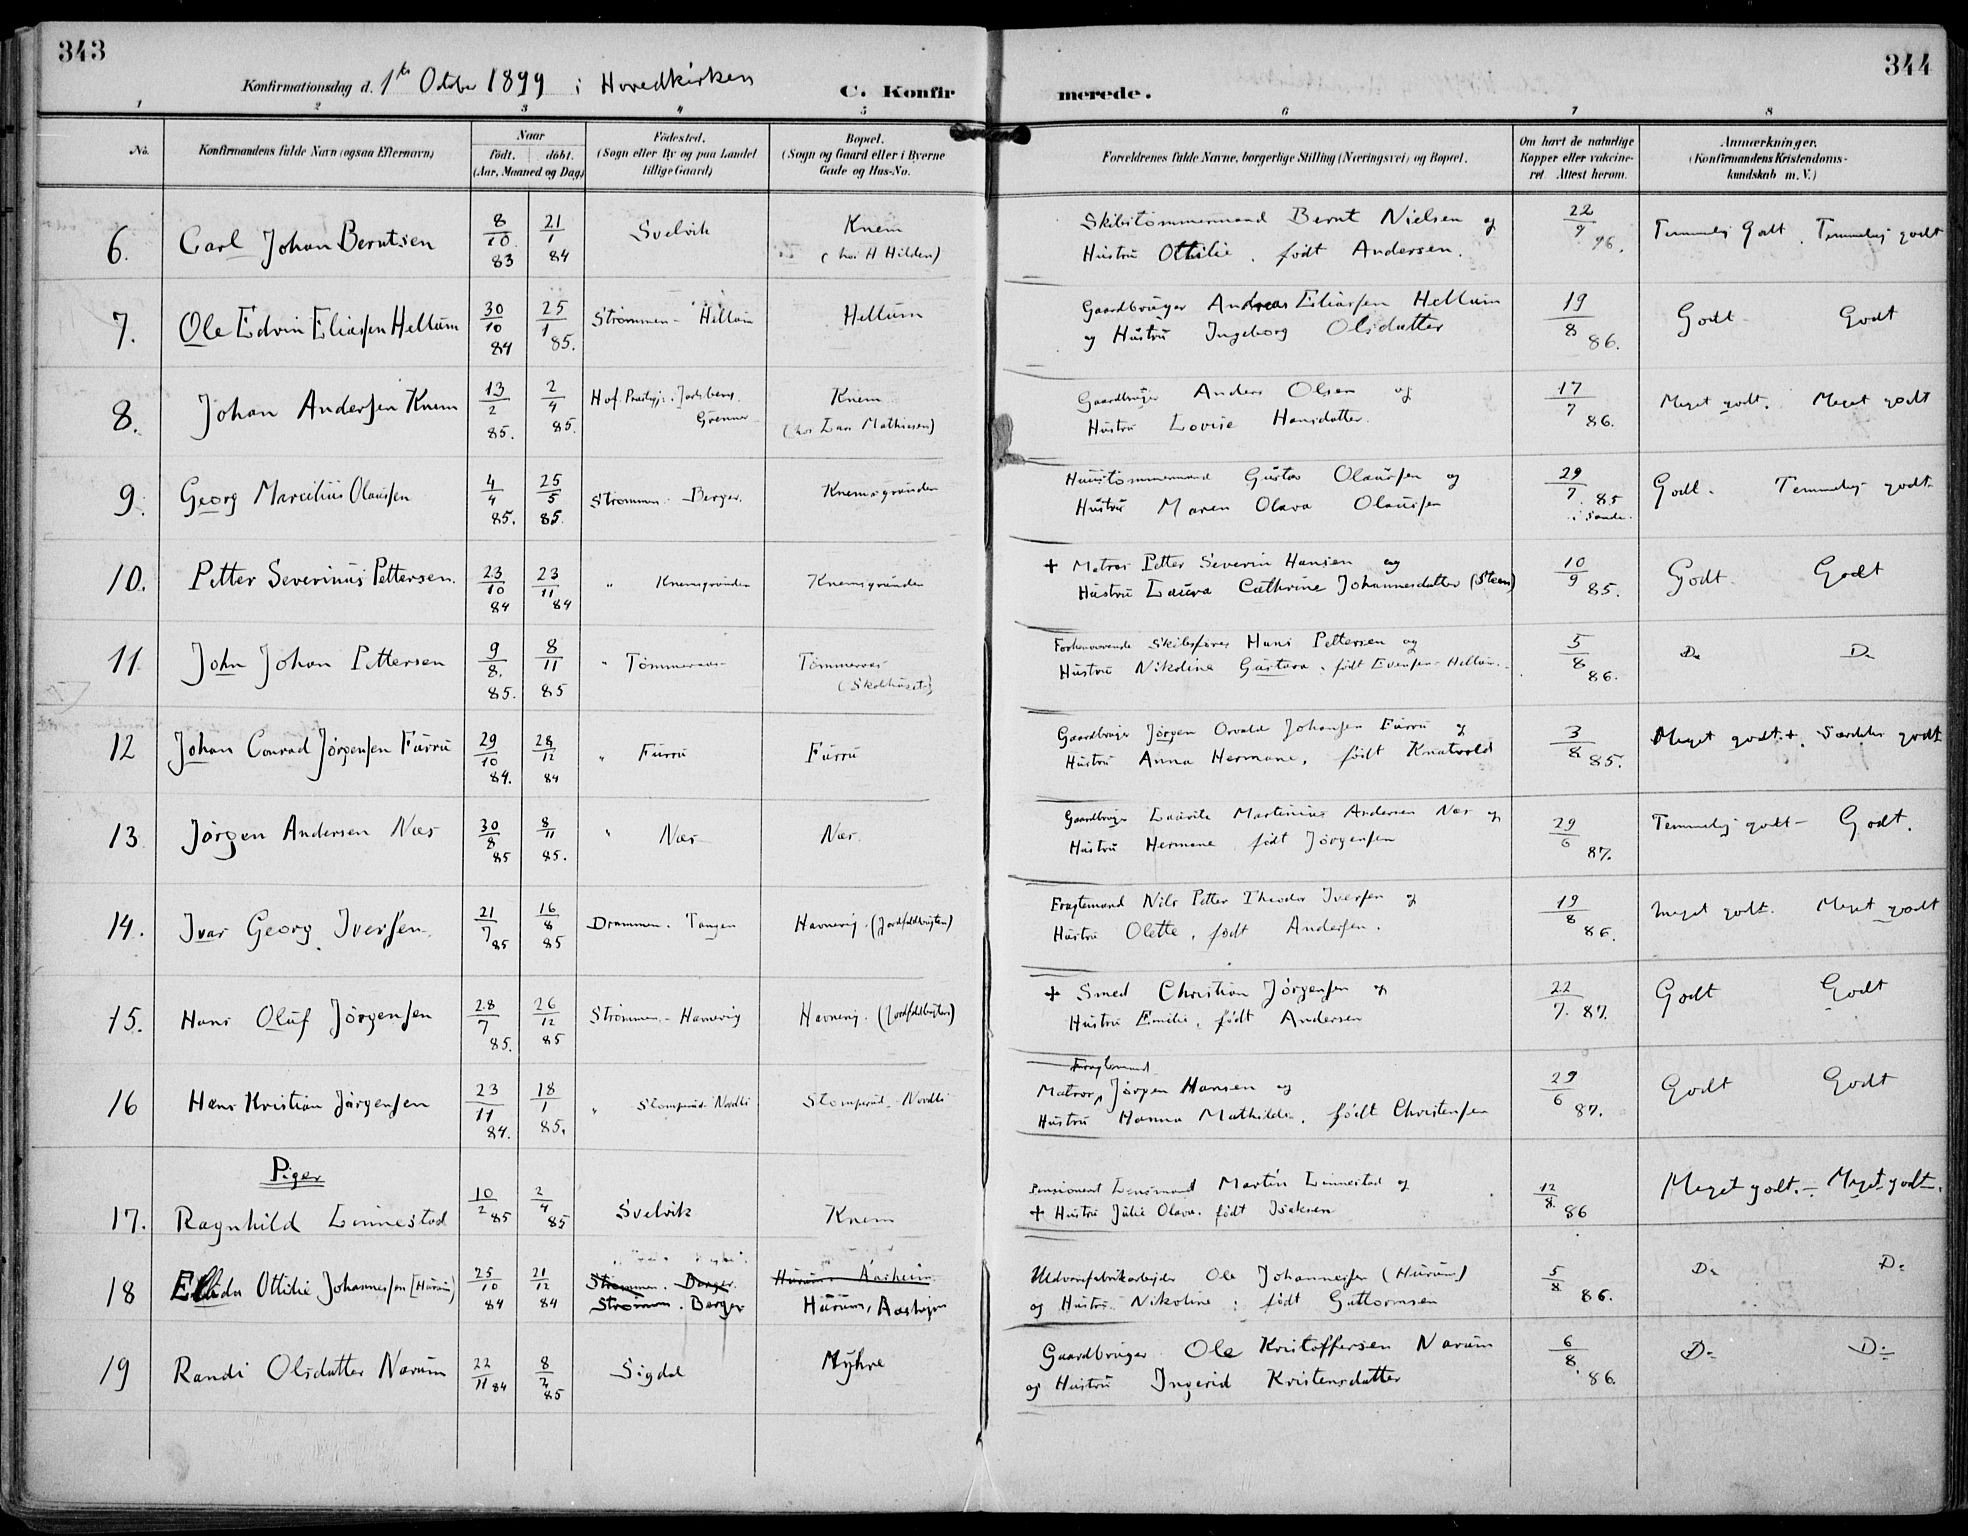 343
344
Konfirmationsdag d. 1ste October 1899 i Hovedkirken
C. Konfir merede.
1 2 3 4 5 6 7 8
No. Konfirmandens fulde Navn (ogsaa Efternavn) Naar født. døbt. (Aar, Maaned og Dag) Födested. (Sogn eller By og paa Landet tillige Gaard) Bopæl. (Sogn og Gaard eller i Byerne Gade og Hus-No. Forældrenes fulde Navne, borgerlige Stilling (Næringsvei) og Bopæl. Om havt de naturlige Kopper eller vakcineret. Attest herom. Anmærkninger. (Konfirmandens Kristendomskundskab m. V.)
6. Carl Johan Berntsen 8/10 83 21/1 84 Svelvik Knem (hos H Hilden) Skibstømmermand Bernt Nielsen og Hustru Ottilie, født Andersen. 22/9 96. Temmelig Godt. Temmelig godt
7. Ole Edvin Eliassen Hellum 30/10 84 25/1 85. Strømmen - Hellum Hellum Gaardbruger Andreas Eliassen Hellum og Hustru Ingeborg Olsdatter 19/8 86. Godt Godt
8. Johan Andersen Knem 13/2 85. 2/4 85. Hof Præstgj. Jarlsberg. Grenner Knem (hos Lars Mathiesen) Gaardbruger Anders Olsen og Hustru Lovise Hansdatter. 17/7 86. Meget godt. Meget godt
9. Georg Marcelius Olaussen 4/4 85. 25/5 85. Strømmen - Berger. Knemsgrunden Huustømmermand Gustav Olaussen og Hustru Maren Olava Olaussen 29/7 85 i Sande. Godt. Temmelig godt.
10. Petter Severinus Pettersen. 23/10 84 23/11 84 " Knemsgrunden Knemsgrunden + Matros Petter Severin Hansen og Hustru Laura Cathrine Johannesdatter (Steen) 10/9 85. Godt. Godt
11 John Johan Pettersen 9/8. 85. 8/11 85 " Tømmeraas Tømmeraas (Skolhuset) Forhenværende Skibsfører Hans Pettersen og Hustru Nikoline Gustava, født Evensen-Hellum. 5/8 86. Do Do
12 Johan Conrad Jørgensen Furru 29/10 84. 28/12 84 " Furru Furru Gaardbruger Jørgen Osvald Johansen Furru og Hustru Anna Hermane, født Knatvold 3/8 85. Meget godt +. Særdeles godt
13 Jørgen Andersen Næs 30/8 85 8/11 85. " Næs Næs. Gaardbruger Laurits Martinius Andersen Næs og Hustru Hermane født Jørgensen 29/6 87. Temmelig godt - Godt.
14. Ivar Georg Iversen. 21/7 85 16/8 85 Drammen. Tangen Havnevig. (Jordfaldbugten) Fragtemand Nils Petter Theodor Iversen og Hustru Olette, født Andersen. 19/8 86. Meget godt. Meget godt
15. Hans Oluf Jørgensen 28/7 85. 26/12 85 Strømmen - Havnevig Havnevig. (Jordfaldbugten) + Smed Christian Jørgensen og Hustru Emilie, født Andersen 22/7. 87. Godt Godt
16 Hans Kristian Jørgensen 23/11 84. 18/1 85. " Stomperud - Nordli Stomperud - Nordli Fragtemand Matros, Jørgen Hansen og Hustru Hanna Mathilde, født Christensen 29/6 87. Godt Godt
Piger
17. Ragnhild Linnestad 10/2 85 2/4 85 Svelvik Knem Pensioneret Lensmand Martin Linnestad og + Hustru Julie Olava. født Isaksen 12/8. 86 Meget godt. - Meget godt.
18 Ellida Ottilie Johannessen [Hurum) 25/10 84 21/12 84 Strømmen. Berger. Strømmen. Berger Hurum. Aasheim. Hurum, Aashejm Uldvarefabrikarbejder Ole Johannessen (Hurum) og Hustru Nikoline, født Guttormsen 5/8 86. Do Do
19 Randi Olsdatter Narum 22/11 84 8/2 85 Sigdal Myhre Gaardbruger Ole Kristoffersen Narum og Hustru Ingerid Kristensdatter 6/8. 86. Do Do